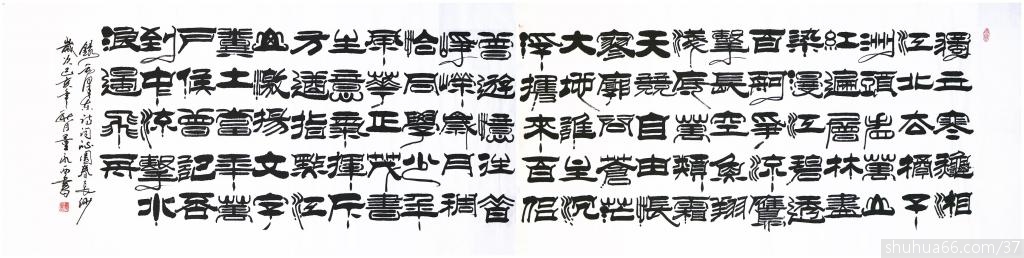 獨立寒龝湘
江北去橘子
洲頭看萬山
紅遍層林盡
染漫江碧透
百舸爭流鷹
擊長空魚翔
淺底萬類霜
天競自由悵
寥廓問蒼茫
大地誰主沉
浮攜來百侶
曾遊憶往昔
崢嶸歲月稠
恰同學少年
風華正茂書
生意氣揮斥
方遒指點江
山激揚文字
糞土當年萬
戶侯曾記否
到中流擊水
浪遏飛舟
錄毛澤東詩詞沁園春長沙
歲次己亥年秋月董永西書
shuhua66.com/37